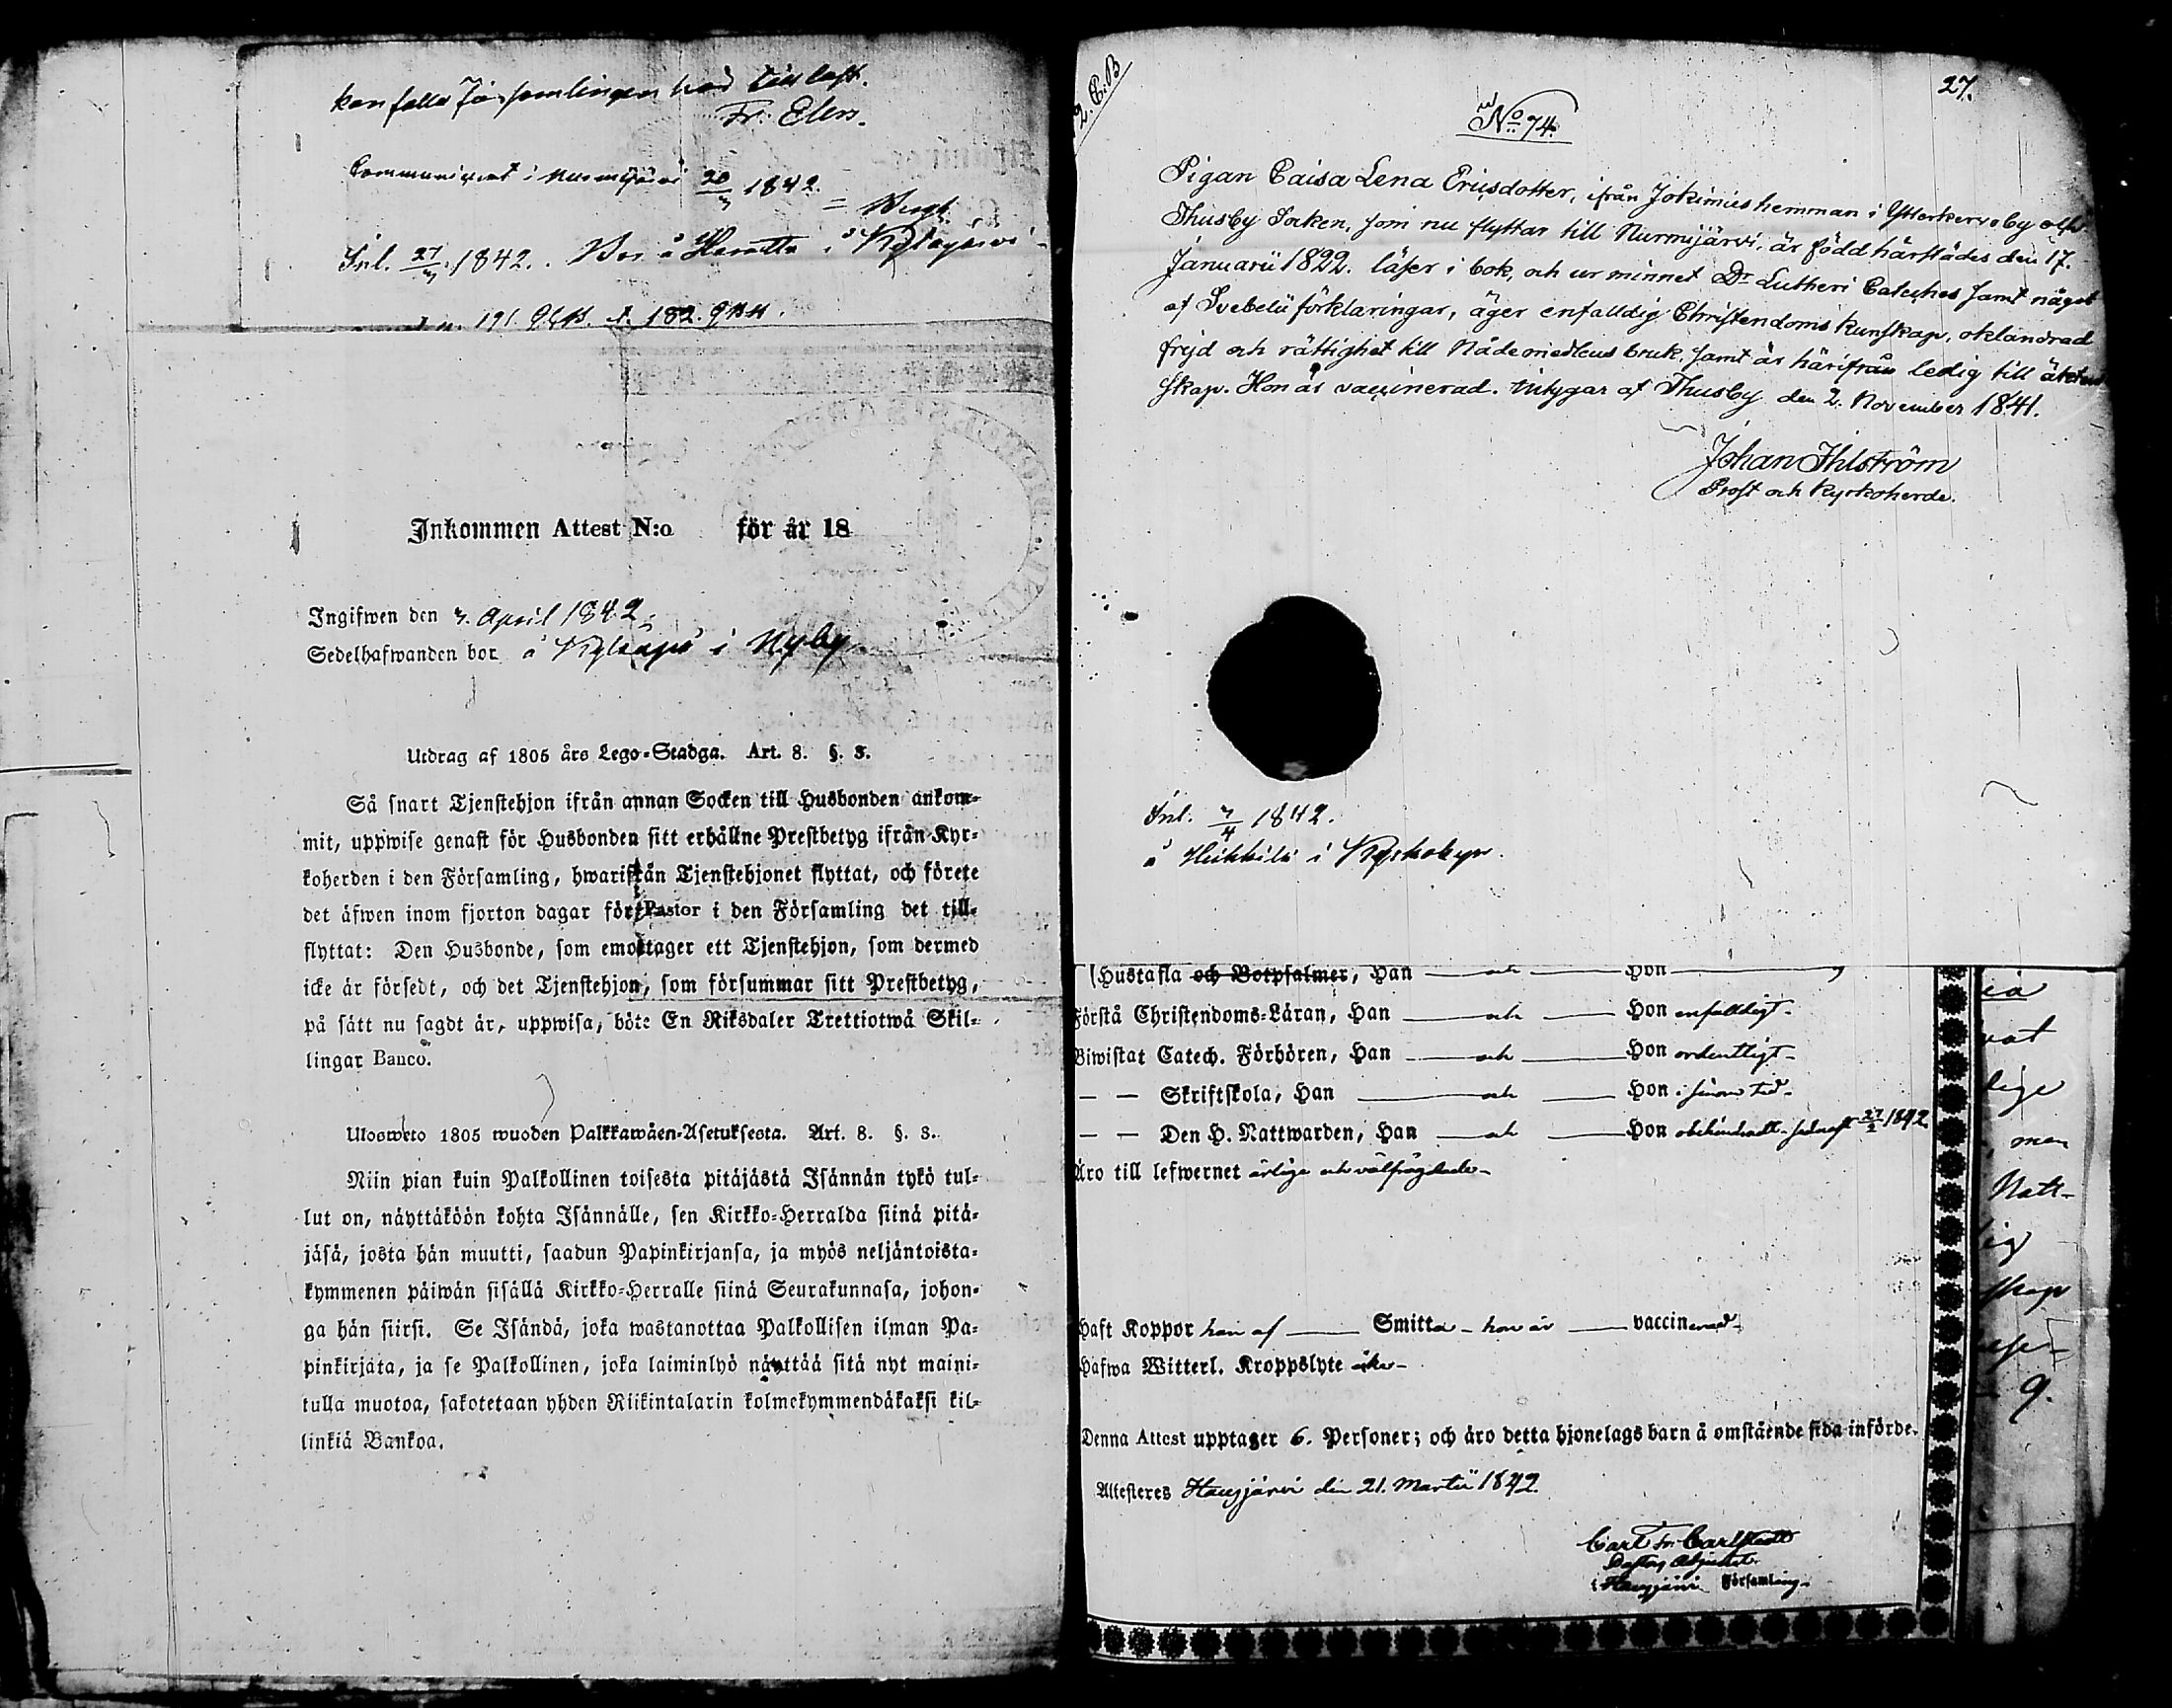 Fr. Elers.
Communicerat i Nurmijärvi 20/3 1842.
Inl. 27/3 1842. Bor å
191 182.
Inkommen Attest N:o för år 18
Ingifwen den 3. April 1842.
Sedelhafwanden bor å i Nyby
Utdrag af 1805 års Lego-Stadga. Art. 8. §. 3.
Så snart Tjenstehjon ifrån annan Socken till Husbonden ankom-
mit, uppwise genast för Husbonden sitt erhållne Prestbetyg ifrån Kyr-
koherden i den Församling, hwarifrån Tjenstehjonet flyttat, och förete
det äfwen inom fjorton dagar för Pastor i den Församling det till-
flyttat: Den Husbonde, som emottager ett Tjenstehjon, som dermed
icke är försedt, och det Tjenstehjon, som försummar sitt Prestbetyg,
på sätt nu sagdt är, uppwisa, böte En Riksdaler Trettiotwå Skil-
lingar Banco.
Uloswето 1805 wuoden Palkkawäen-Asetuksesta. Art. 8. §. 3.
Niin pian kuin Palkollinen toisesta pitäjästä Isännän tykö tul-
lut on, näyttäköön kohta Isännälle, sen Kirkko-Herralda siinä pitä-
jäsä, josta hän muutti, saadun Papinkirjansa, ja myös neljäntoista-
kymmenen päiwän sisällä Kirkko-Herralle siinä Seurakunnasa, johon-
ga hän siirsi. Se Isändä, joka wastanottaa Palkollisen ilman Pa-
pinkirjata, ja se Palkollinen, joka laiminlyö näyttää sitä nyt maini-
tulla muotoa, sakotetaan yhden Riikintalarin kolmekymmendäkaksi kil-
linkiä Bankoa.
27.
No 74.
Pigan Caisa Lena Ericsdotter, ifrån Jokimies hemman i Ytterkervoby och
Thusby Socken, som nu flyttar till Nurmijärvi, är född härstädes den 17.
Januarii 1822. läser i bok, och ur minnet Dr Lutheri Cateches samt något
af Svebelii förklaringar, äger enfalldig Christendoms kunskap, oklandrad
frejd och rättighet till Nådemedlens bruk, samt är härifrån ledig till äkten
skap. Hon är vaccinerad. Intygar af Thusby den 2. November 1841.
Johan Ihlström
Prost och Kyrkoherde.
Inl. 3/4 1842.
å i Kyrkobyn.
Hustafla och Botpsalmer, Han och Hon
Förstå Christendoms-Läran, Han och Hon enfalldigt
Biwistat Catech. Förhören, Han och Hon ordentligt
— — Skriftskola, Han och Hon i sinom tid
— — Den H. Nattwarden, Han och Hon obehindradt senast 27/2 1842.
Äro till lefwernet ärlige och välfrägdade
Haft Koppor han af Smitta hon är vaccinerad
Hafwa Witterl. Kroppslyte icke
Denna Attest upptager 6. Personer; och äro detta hjonelags barn å omstående sida införde.
Attesteres Hausjärvi den 21. Martii 1842.
Carl Fr. Carlstedt
Pastors Adjunct
i Hausjärvi Församling
vat
lige
men
Natt-
ig
skap
9.